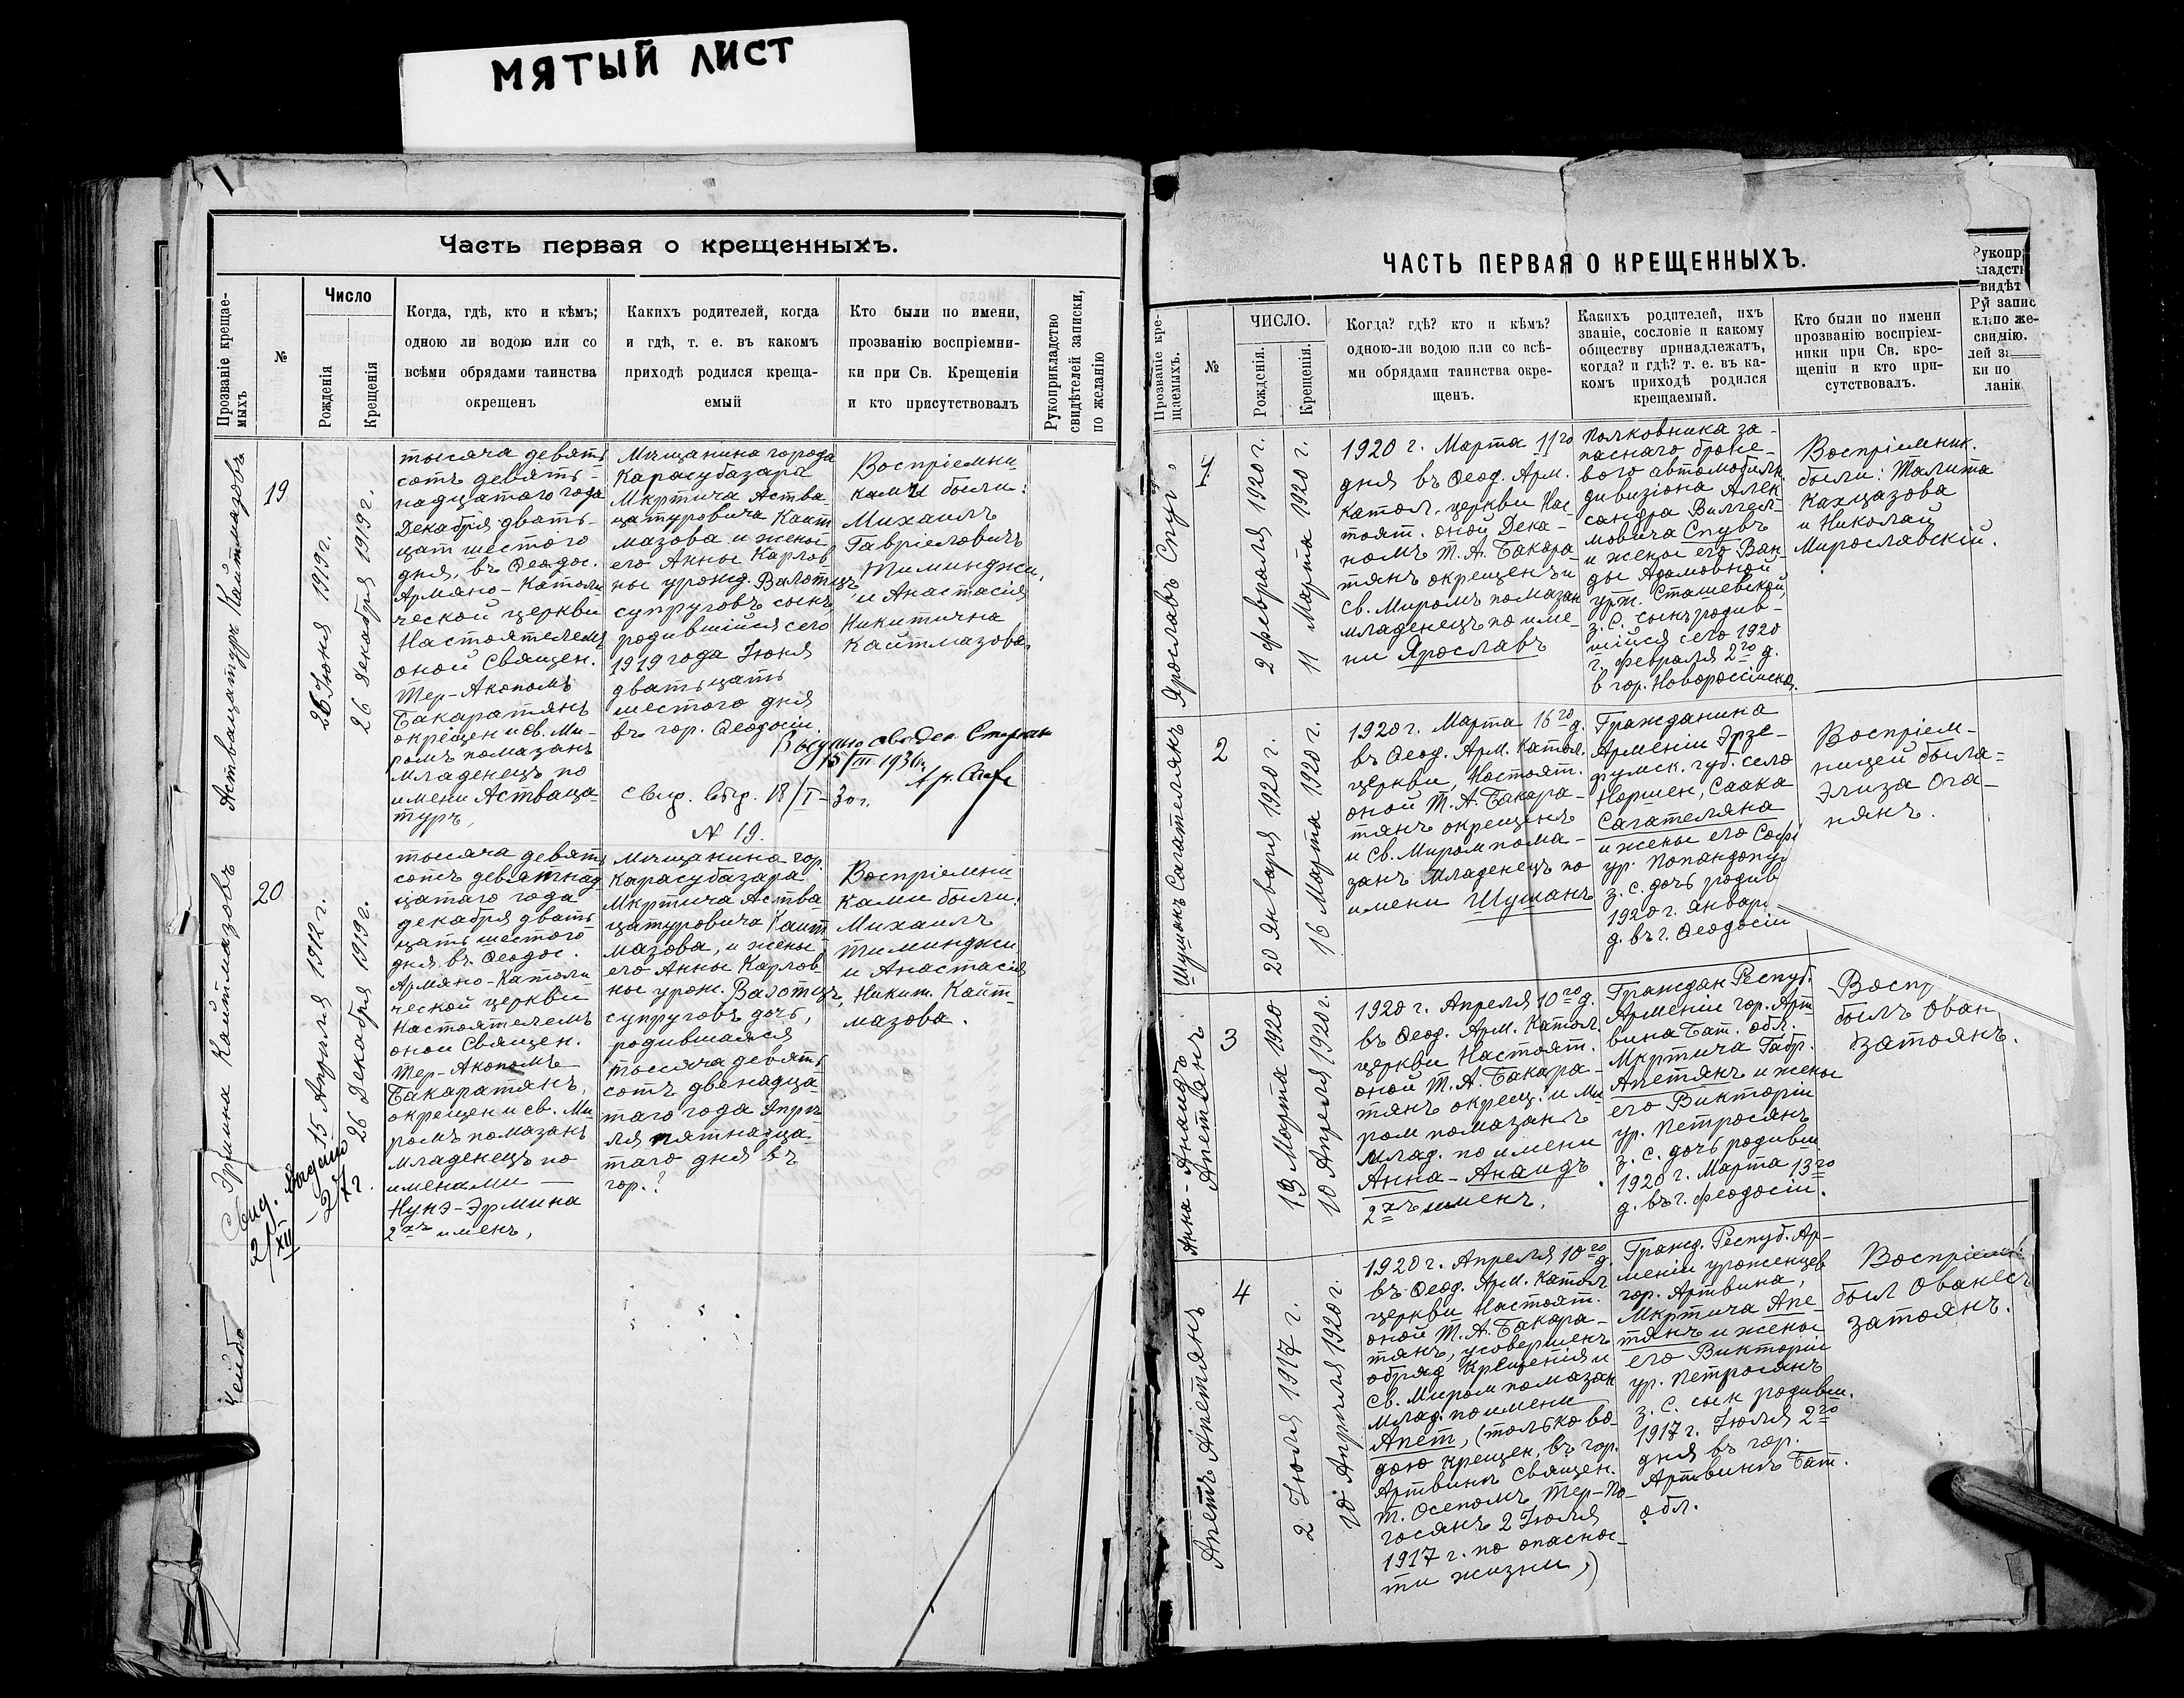 МЯТЫЙ ЛИСТ
Часть первая о крещенныхъ.
Прозваніе крещае-
мыхъ
№
Число
Рожденія
Крещенія
Когда, гдѣ, кто и кѣмъ;
одною ли водою или со
всѣми обрядами таинства
окрещенъ
Какихъ родителей, когда
и гдѣ, т. е. въ какомъ
приходѣ родился креща-
емый
Кто были по имени,
прозванію воспріемни-
ки при Св. Крещеніи
и кто присутствовалъ
Рукоприкладство
свидѣтелей записки,
по желанію
Аствацатуръ Кайтмазовъ
19
26 Іюня 1919 г.
26 Декабря 1919 г.
тысяча девять
сотъ девять-
надцатаго года
Декабря двать-
цат шестого
дня, въ Ѳеодос.
Армяно-Католи
ческой церкви
Настоятелемъ
оной Священ.
Тер-Акопомъ
Бакаратянъ
окрещен и Св. Ми-
ромъ помазанъ
младенецъ по
имени Аствaца-
туръ,
Мѣщанина города
Карасубазара
Мкртича Аства
цатуровича Кайт
мазова и жены
его Анны Карлов
ны урожд. Валотицъ
супруговъ сынъ
родившійся сего
1919 года Іюня
двать цать
шестого дня
въ гор. Ѳеодосіи.
Воспріемни-
ками были:
Михаилъ
Гавріеловичъ
Тиминджи,
и Анастасія
Никитична
Кайтмазова.
15/III 1930 г.
18/I-30 г.
N 19.
Эрмина Кайтмазовъ
20
15 Апрѣля 1912 г.
26 Декабря 1919 г.
тысяча девять
сотъ девятнад
цатаго года
декабря двать
цать шестого
дня, въ Ѳеодос.
Армяно-Католи
ческой церкви
Настоятелемъ
оной Священ.
Тер-Акопомъ
Бакаратянъ,
окрещен и св. Ми
ромъ помазанъ
младенецъ по
именами
Нунэ-Эрмина
2хъ именъ,
Мѣщанина гор.
Карасубазара
Мкртича Аства
цатуровича Кайт
мазова, и жены
его Анны Карлов
ны урож. Валотицъ,
супруговъ дочь,
родившаяся
тысяча девять
сотъ двенадца
таго года Апрѣ
ля пятнадца
таго дня въ
гор.?
Воспріемни
ками были:
Михаилъ
Тиминджи
и Анастасія
Никит. Кайт-
мазова.
2/XII
ЧАСТЬ ПЕРВАЯ О КРЕЩЕННЫХЪ.
Прозваніе кре-
щаемыхъ.
№
ЧИСЛО.
Рожденія.
Крещенія.
Когда? гдѣ? кто и кѣмъ?
одною-ли водою или со всѣ-
ми обрядами таинства окре-
щенъ.
Какихъ родителей, ихъ
званіе, сословіе и какому
обществу принадлежатъ,
когда? и гдѣ? т. е. въ ка-
комъ приходѣ родился
крещаемый.
Кто были по имени
прозванію воспріем-
ники при Св. кре-
щеніи и кто при-
сутствовалъ.
Ярославъ Спугъ,
1
2 февраля 1920 г.
11 Марта 1920 г.
1920 г. Марта 11го
дня въ Ѳеод. Арм.
Катол. церкви Нас
тоят. оной Дека-
номъ Т. А. Бакара
тянъ окрещенъ и
св. Миромъ помазан
младенецъ по име-
ни Ярославъ
Полковника за-
паснаго броне-
вого автомобильн.
дивизіона Алек
сандра Вилгел-
мовича Спувъ
и жены его Ван
ды Адамовной
урж. Сташевской,
з. с. сынъ родив-
шійся сего 1920
г. февраля 2го д.
в гор. Новороссійска.
Воспріемник.
были: Талита
Кахцазова
и Николай
Мирославскій.
Шушанъ Сагателянъ
2
20 января 1920 г.
16 Марта 1920 г.
1920 г. Марта 16го д.
въ Ѳеод. Арм. Катол.
церкви, Настоят.
оной Т. А. Бакара-
тянъ окрещенъ
и Св. Миром пома-
занъ Младенецъ по
имени Шушанъ
Гражданина
Арменіи Эрзе-
румск. губ. село
Норшен, Саака
Сагателяна
и жены его Соф
ур. Попандопу
з. с. дочь родив
1920 г. Январ
д. въ г. Ѳеодосіи
Воспріем-
ницей была-
Элиза Ога-
нянъ.
Анна-Анаидъ
Апетянъ
3
13 Марта 1920
10 Апреля 1920 г.
1920 г. Апреля 10го д.
въ Ѳеод. Арм. Катол.
церкви Настоят.
оной Т. А. Бакара-
тянъ окрещ. и Ми
ром помазанъ
млад. по имени
Анна-Анаидъ
2хъ именъ.
Граждан Респуб.
Арменіи гор. Арт
вина Бат. обл.
Мкртича Габр.
Апетянъ и жены
его Викторіи
ур. Петросянъ
з. с. дочь родивш
1920 г. Марта 13го
д. въ г. Феодосіи.
Воспр
былъ Ован
затоянъ.
Апетъ Апетянъ
4
2 Іюля 1917 г.
10 Апрѣля 1920 г.
1920 г. Апреля 10го д.
въ Ѳеод. Арм. Катол
церкви Настоят.
оной Т. А. Бакара-
тянъ, усовершенъ
обряд Крещенія и
св. Миром помазан
Млад. по имени
Апет, (только во-
дою крещен, въ гор.
Артвинъ Священ.
Т. Осепомъ Тер-По-
госянъ 2 Іюля
1917 г. по опаснос-
ти жизни,)
Гражд. Респуб. Ар-
меніи уроженцев
гор. Артвина,
Мкртича Апе
тянъ и жены
его Викторіи
ур. Петросянъ
з. с. сын родивш.
1917 г. Іюля 2го
дня въ гор.
Артвинъ Бат.
обл.
Воспріем
был Ованесъ
затоянъ.